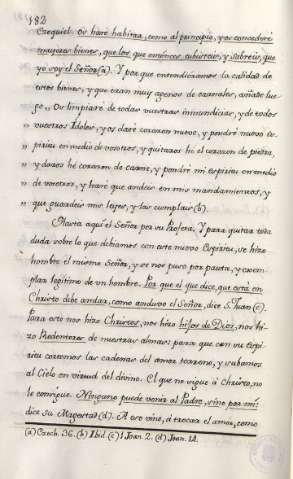 182
Ezequiel: Os haré habitar, como al principio, y os concederé
mayores bienes, que los que entonces tubisteis, y sabreis, que
yo soy el Señor (a). Y para que entendieramos la calidad de
estos bienes, y que eran muy agenos de carnales, añade lue-
go: Os limpiaré de todas vuestras inmundicias, y de todos
" vuestros Idolos, y os daré corazon nuevo, y pondré nuevo es-
" piritu en medio de vosotros, y quitaros hé el corazon de piedra,
" y daros hé corazon de carne, y pondré mi espiritu en medio
" de vosotros, y haré que andeis en mis mandamientos, y
" que guardeis mis leyes, y las cumplais (b).
Hasta aquí el Señor por su Profeta. Y para quitar toda
duda sobre lo que debiamos con este nuevo Espiritu, se hizo
hombre el mismo Señor, y se nos puso por pauta, y exem-
plar legitimo de un hombre. Por que el que dice, que está en
Christo debe andar, como anduvo el Señor, dice S. Juan (c).
Para esto nos hizo Christos, nos hizo hijos de Dios, nos hi-
zo Redentores de nuestras almas: para que con su Espi-
ritu cortemos las cadenas del amor terreno, y subamos
al Cielo en virtud del divino. El que no sigue á Christo, no
lo consigue. Ninguno puede venir al Padre, sino por mí:
dice su Magestad (d). A eso vino, á trocar el amor, como
(a) Ezech. 36. (b) Ibid. (c) 1 Joan. 2. (d) Joan. 14.